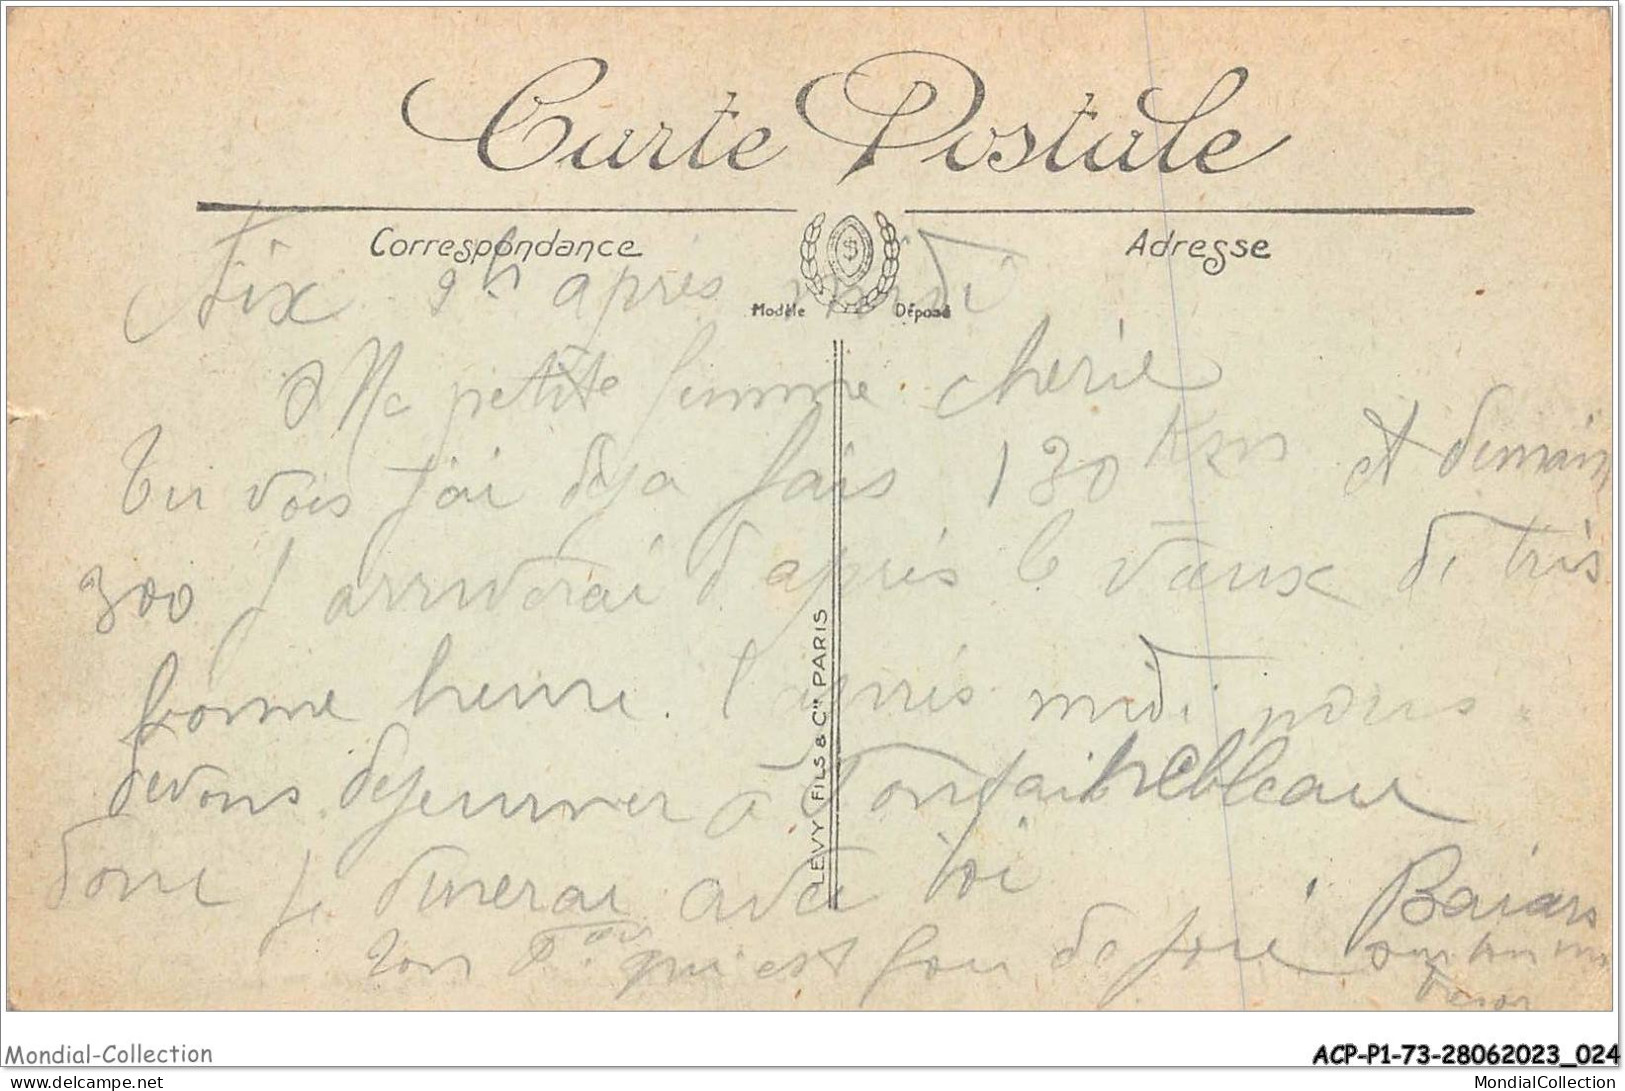 Carte Postale
Correspondance
Adresse
Aix 9h après midi
Modèle Déposé
Ma petite femme cherie
Tu vois j'ai deja fais 130 Km et demain
300 j arriverai d'après le vieux de très
bonne heure. l'après midi nous
devons dejeuner à Fontainebleau
donc je dinerai avec toi
ton qui est fou de joie Baisers
sur ton
LEVY FILS & Cie PARIS
Mondial-Collection
ACP-P1-73-28062023_024
www.delcampe.net
MondialCollection